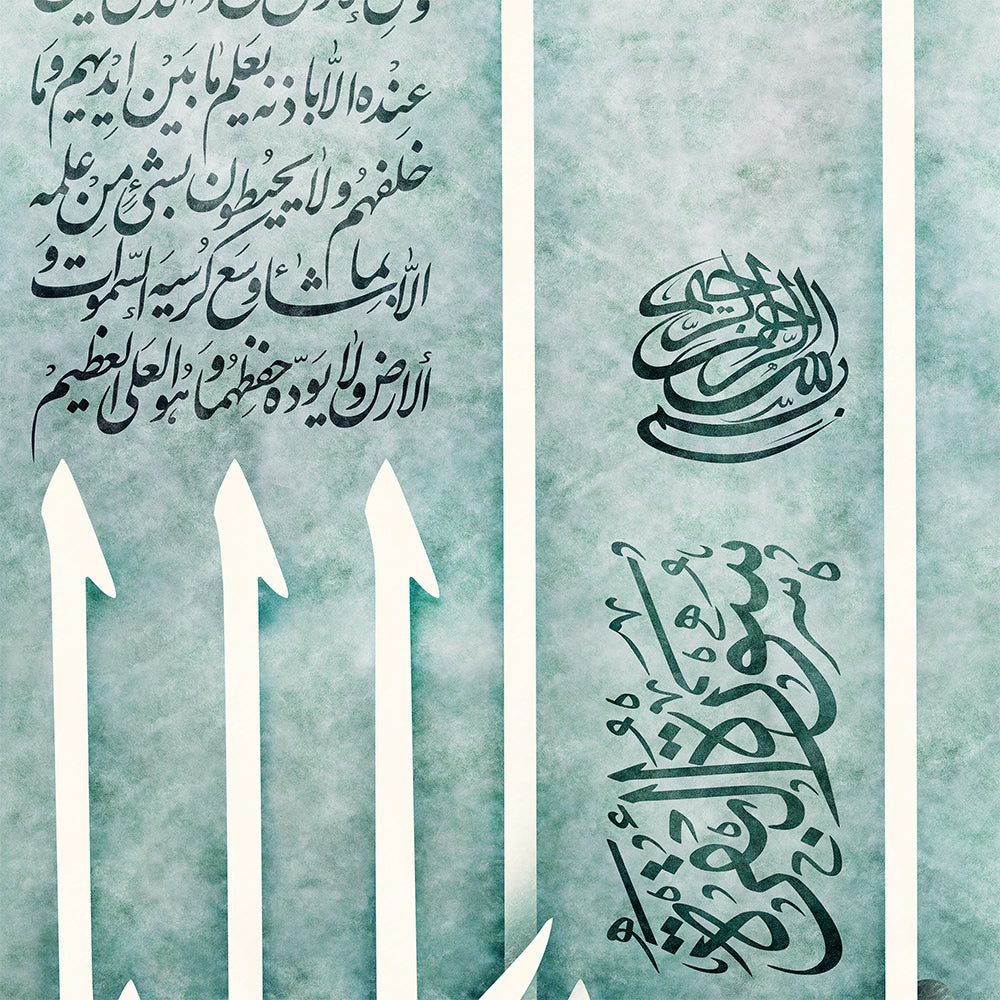 عِنْدهُ الّا باذنه يَعلم مٰا بَيْن ايْديهم وَمَا
خلفهُم وَلاٰ يحيُطون بشئٍ مِنْ علمه
الّاٰ بمٰا شٰاءَ وسَع كُرسيَه السّمٰوات وَ
الأرضَ وَلاٰ يَودّه حفظِهُما وَهُو العَلى العظيمْ
بسم الله الرحمن الرحيم
سورة البقرة